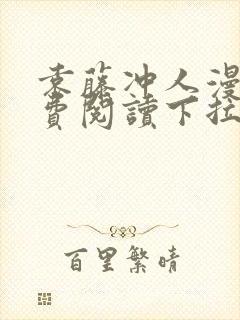 袁藤冲人漫
费阅讀下拉
百里繁晴